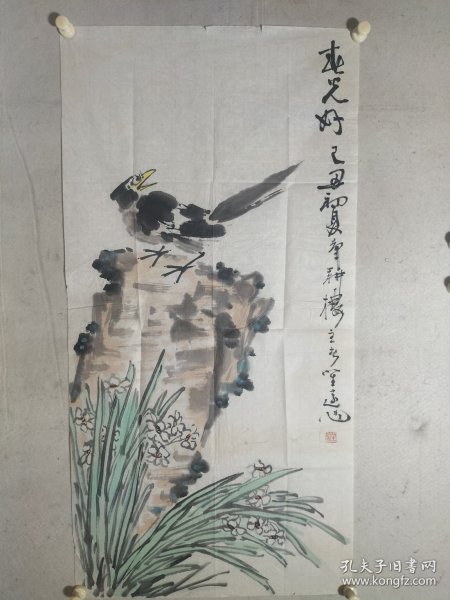 春光好 己丑初夏笔耕楼主
孔夫子旧书网
www.kongfz.com